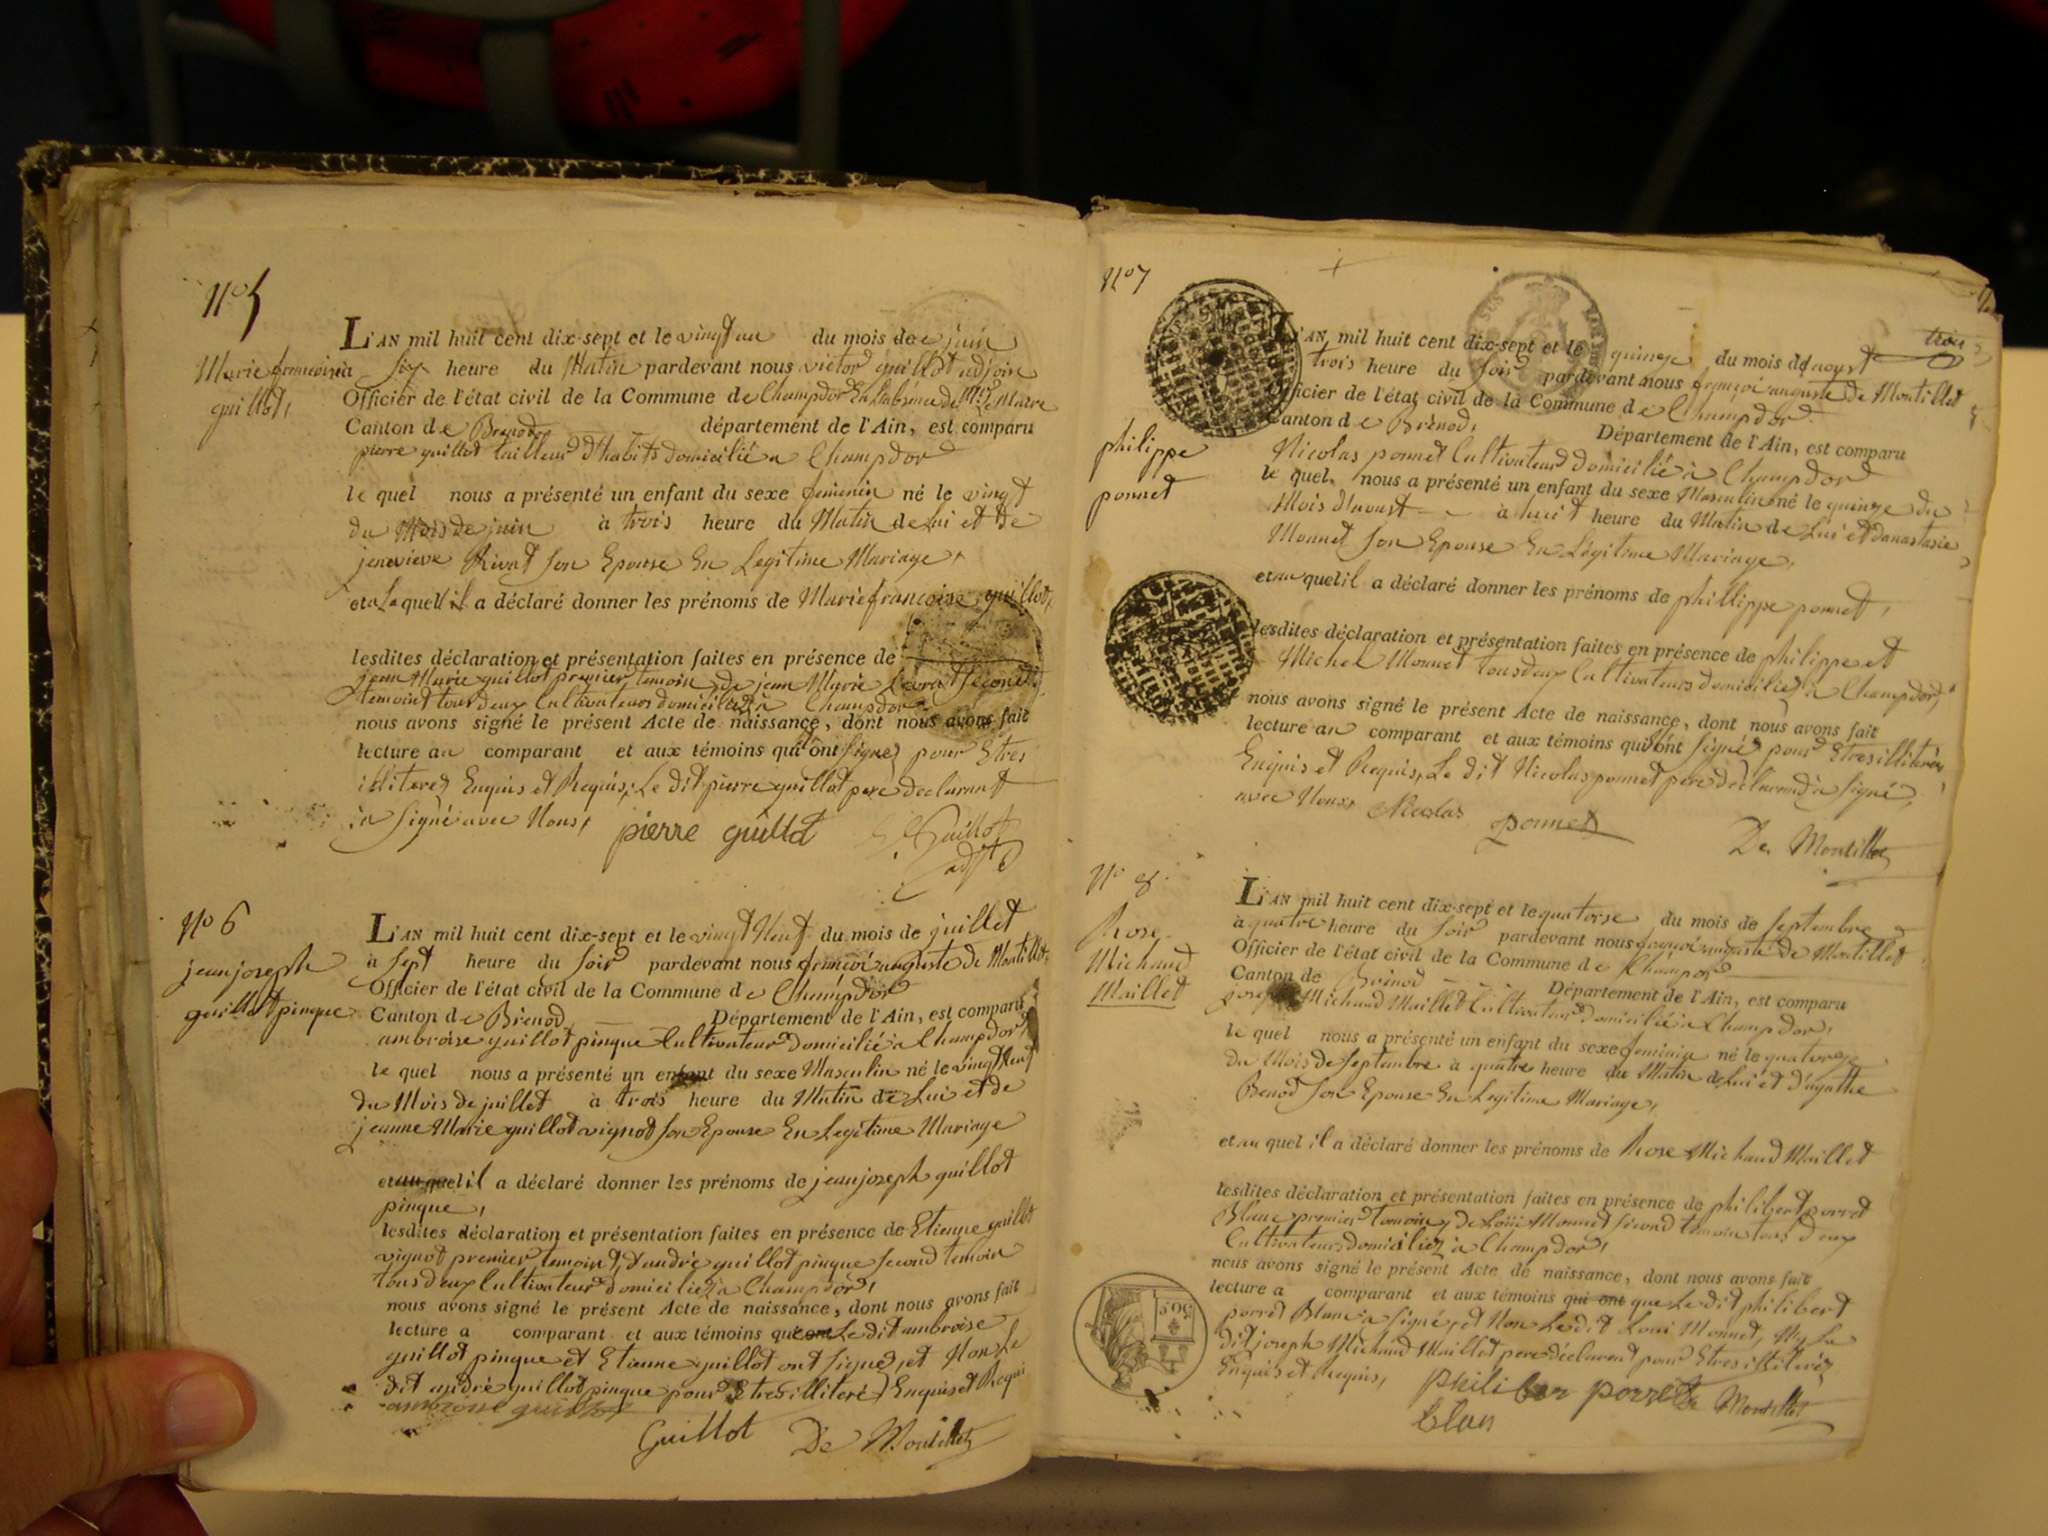 N° 5
Marie francoise
guillot,
L'AN mil huit cent dix-sept et le vingt un du mois de juin
a six heure du Matin pardevant nous victor guillot adjoin
Officier de l'état civil de la Commune de Champdor En Labsence de Mr Le Maire
Canton de Brenod département de l'Ain, est comparu
pierre guillot tailleur d'habits domicilié a Champdor
le quel nous a présenté un enfant du sexe feminin né le vingt
du Mois de juin à trois heure du Matin de Lui et de
jenevieve Rivat son Epouse En Legitime Mariage,
et a Laquell il a déclaré donner les prénoms de Marie francoise guillot,
lesdites déclaration et présentation faites en présence de
jean Marie guillot premier temoin, de jean Marie second
temoint tous deux Cultivateurs domiciliez a Champdor
nous avons signé le présent Acte de naissance, dont nous avons fait
lecture au comparant et aux témoins qui ont signez pour Etres
illiterez Enquis et Requis, Le dit pierre guillot pere declarant
a Signé avec Nous, pierre guillot Guillot
adjt
N° 6
jean joseph
guillot pinque
L'AN mil huit cent dix-sept et le vingt Neuf du mois de juillet
à Sept heure du Soir pardevant nous francoi auguste de Montillet
Officier de l'état civil de la Commune de Champdor
Canton de Brenod Département de l'Ain, est comparu
ambroise guillot pinque Cultivateur domicilié a Champdor
le quel nous a présenté un enfant du sexe Masculin né le vingt Neuf
du Mois de juillet à trois heure du Matin de Lui et de
jeanne Marie guillot vignot son Epouse En Legitime Mariage
et au quel il a déclaré donner les prénoms de jean joseph guillot
pinque,
lesdites déclaration et présentation faites en présence de Etienne guillot
vignot premier temoint, d'andré guillot pinque second temoin
tous deux Cultivateur domiciliez a Champdor,
nous avons signé le présent Acte de naissance, dont nous avons fait
lecture a comparant et aux témoins qui ont Le dit ambroise
guillot pinque et Etienne guillot ont signez, et Non Le
dit andré guillot pinque pour Etres illiteré, Enquis et Requi
ambroise guillot
Guillot De Montillet
N° 7
trois
philippe
ponnet
L'AN mil huit cent dix-sept et le quinze du mois d'aoust
trois heure du soir pardevant nous francoi auguste de Montillet
Officier de l'état civil de la Commune de Champdor
Canton de Brénod, Département de l'Ain, est comparu
Nicolas ponnet Cultivateur domicilié à Champdor
le quel nous a présenté un enfant du sexe Masculin né le quinze du
Mois d'aoust à huit heure du Matin de Lui et d'anastasie
Monnet son Epouse En Légitime Mariage,
et au quel il a déclaré donner les prénoms de phillippe ponnet,
lesdites déclaration et présentation faites en présence de philippe et
Michel Monnet tous deux Cultivateurs domiciliez à Champdor,
nous avons signé le présent Acte de naissance, dont nous avons fait
lecture au comparant et aux témoins qui ont signé pour Etres illiterés
Enquis et Requis, Le dit Nicolas ponnet pere declarant à Signé,
avec Nous, Nicolas ponnet
De Montillet
N° 8
Rose
Michaud
Maillet
L'AN mil huit cent dix-sept et le quatorse du mois de Septembre
à quatre heure du Soir pardevant nous françoi auguste de Montillet
Officier de l'état civil de la Commune de Champdor
Canton de Brénod Département de l'Ain, est comparu
joseph Michaud Maillet Cultivateur domicilié a Champdor,
le quel nous a présenté un enfant du sexe feminin né le quatorze
du Mois de Septembre à quatre heure du Matin de Lui et d'agathe
Benod son Epouse En Legitime Mariage,
et au quel il a déclaré donner les prénoms de Rose Michaud Maillet
lesdites déclaration et présentation faites en présence de philibert porret
Blanc premier temoin, de Loüi Monnet second temoin tous deux
Cultivateurs domiciliez à Champdor,
nous avons signé le présent Acte de naissance, dont nous avons fait
lecture a comparant et aux témoins qui ont que Le dit philibert
porret Blanc a signé, et Non Le dit Loui Monnet, Ny Le
dit joseph Michaud Maillet pere déclarent pour Etres illiterez
Enquis et Requis, philiber porret De Montillet
blan